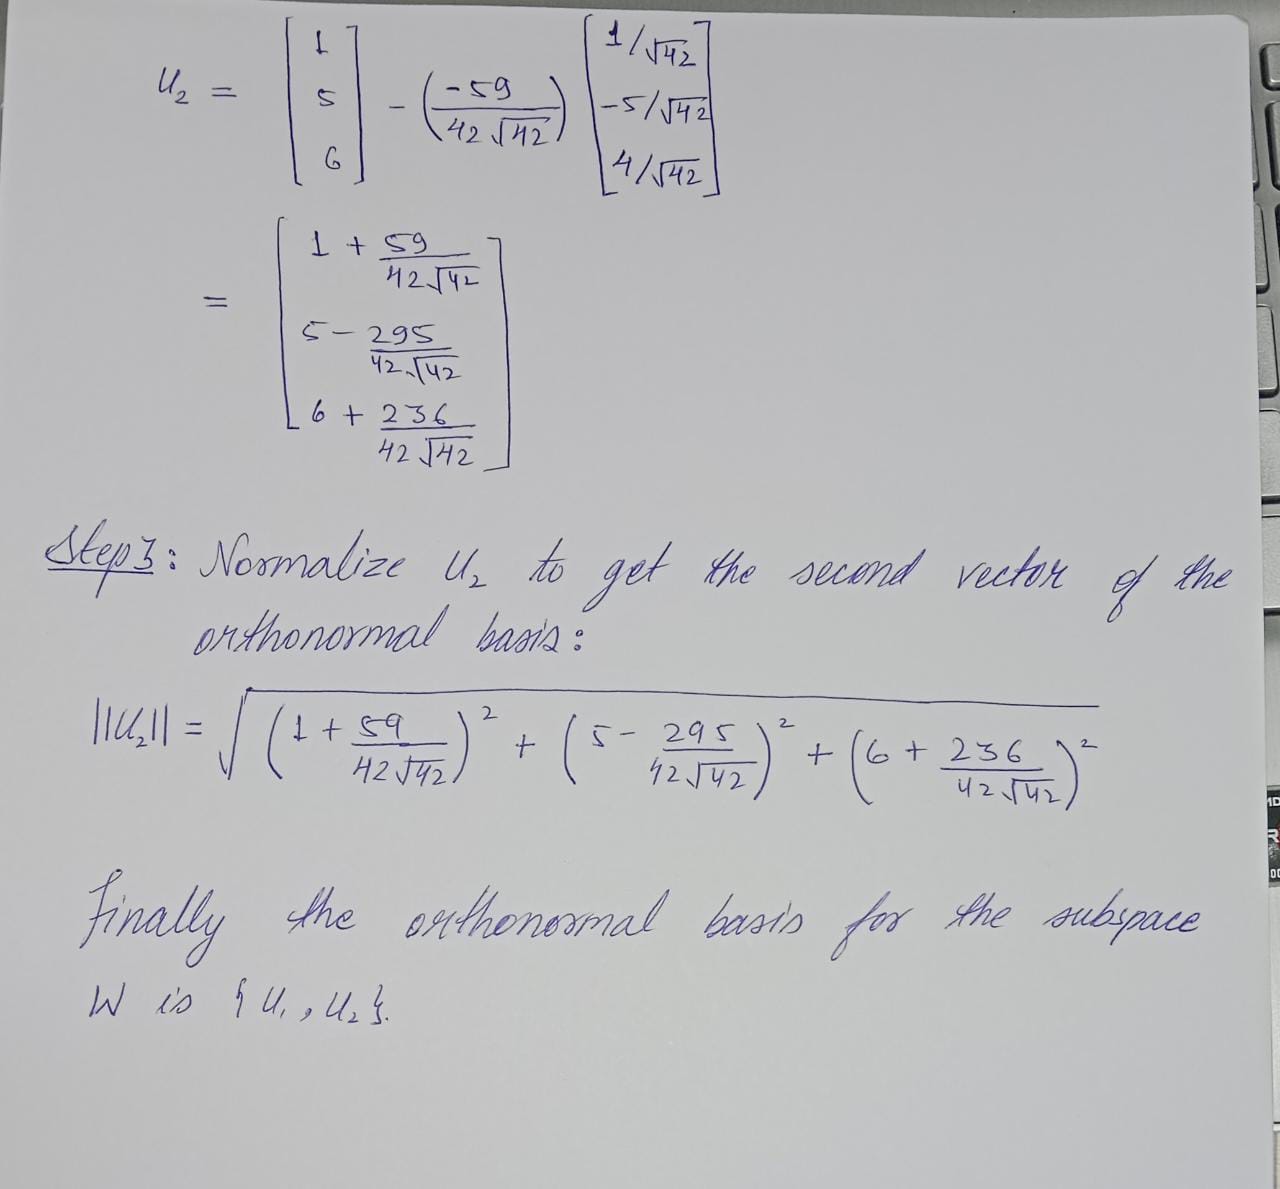 U₂ = [1 5 6] - (-59 / 42√42) [1/√42 -5/√42 4/√42]
= [1 + 59/42√42 5 - 295/42√42 6 + 236/42√42]
Step 3: Normalize U₂ to get the second vector of the
orthonormal basis:
||U₂|| = √((1 + 59/42√42)² + (5 - 295/42√42)² + (6 + 236/42√42)²)
Finally the orthonormal basis for the subspace
W is {U₁, U₂}.